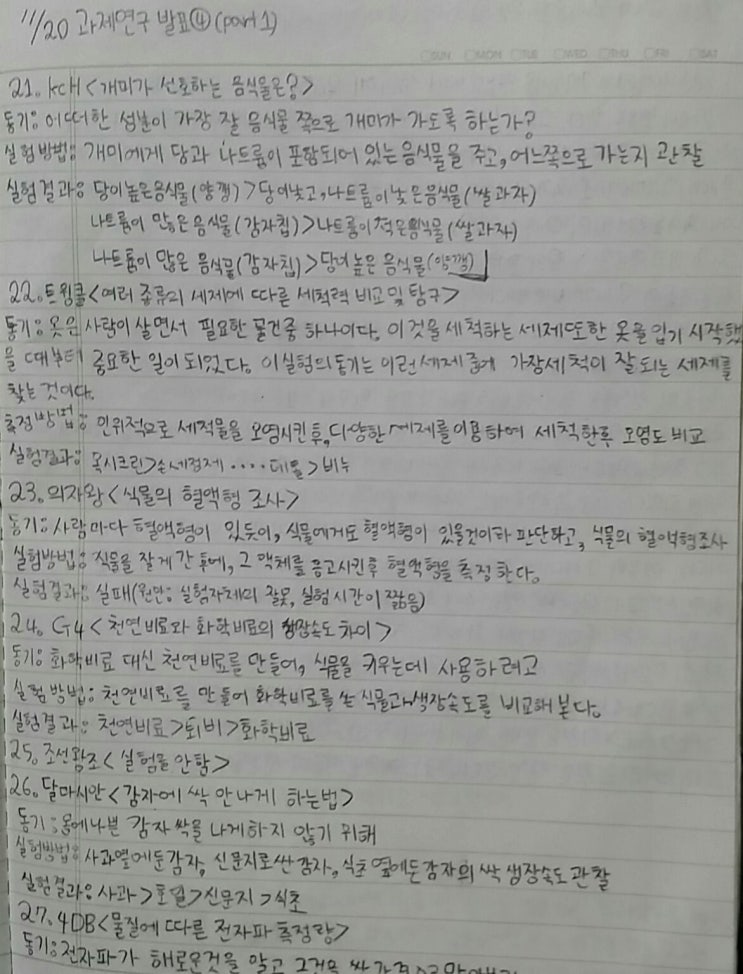 11/20 과제연구 발표④ (part 1)
SUN MON TUE WED THU FRI SAT
21. KCH <개미가 선호하는 음식물은?>
동기: 어떠한 성분이 가장 잘 음식물 쪽으로 개미가 가도록 하는가?
실험방법: 개미에게 당과 나트륨이 포함되어 있는 음식물을 주고, 어느쪽으로 가는지 관찰
실험결과: 당이높은음식물(양갱)>당이낮고, 나트륨이 낮은음식물(쌀과자)
나트륨이 많은 음식물(감자칩)>나트륨이 적은음식물(쌀과자)
나트륨이 많은 음식물(감자칩)>당이 높은 음식물(양갱)
22. 트윙클<여러 종류의 세제에 따른 세척력 비교 및 탐구>
동기: 옷은 사람이 살면서 필요한 물건중 하나이다. 이것을 세척하는 세제또한 옷을 입기 시작했
을 때부터 중요한 일이 되었다. 이실험의동기는 이런세제 중에 가장세척이 잘 되는 세제를
찾는 것이다.
측정방법: 인위적으로 세척물을 오염시킨 후, 다양한 세제를이용하여 세척한후 오염도 비교
실험결과: 옥시크린>손세정제 ···· >비누
23. 의자왕<식물의 혈액형 조사>
동기: 사람마다 혈액형이 있듯이, 식물에게도 혈액형이 있을것이라 판단하고, 식물의 혈액형조사
실험방법: 식물을 잘게 간 후에, 그 액체를 응고시킨후 혈액형을 측정 한다.
실험결과: 실패(원인: 실험자체의 잘못, 실험 시간이 짧음)
24. G4<천연비료와 화학비료의 생장속도 차이>
동기: 화학비료 대신 천연비료를 만들어, 식물을 키우는데 사용하려고
실험방법: 천연비료를 만들어 화학비료를 쓴 식물과 생장속도를 비교해 본다.
실험결과: 천연비료>퇴비>화학비료
25. 조선왕조<실험을 안함>
26. 달마시안<감자에 싹 안나게 하는법>
동기: 몸에나쁜 감자 싹을 나게하지 않기 위해
실험방법: 사과옆에둔감자, 신문지로싼감자, 식초 옆에둔감자의 싹 생장속도 관찰
실험결과: 사과>호일>신문지>식초
27. 4DB<물질에 따른 전자파 측정량>
동기: 전자파가 해로운것을 알고 그것을